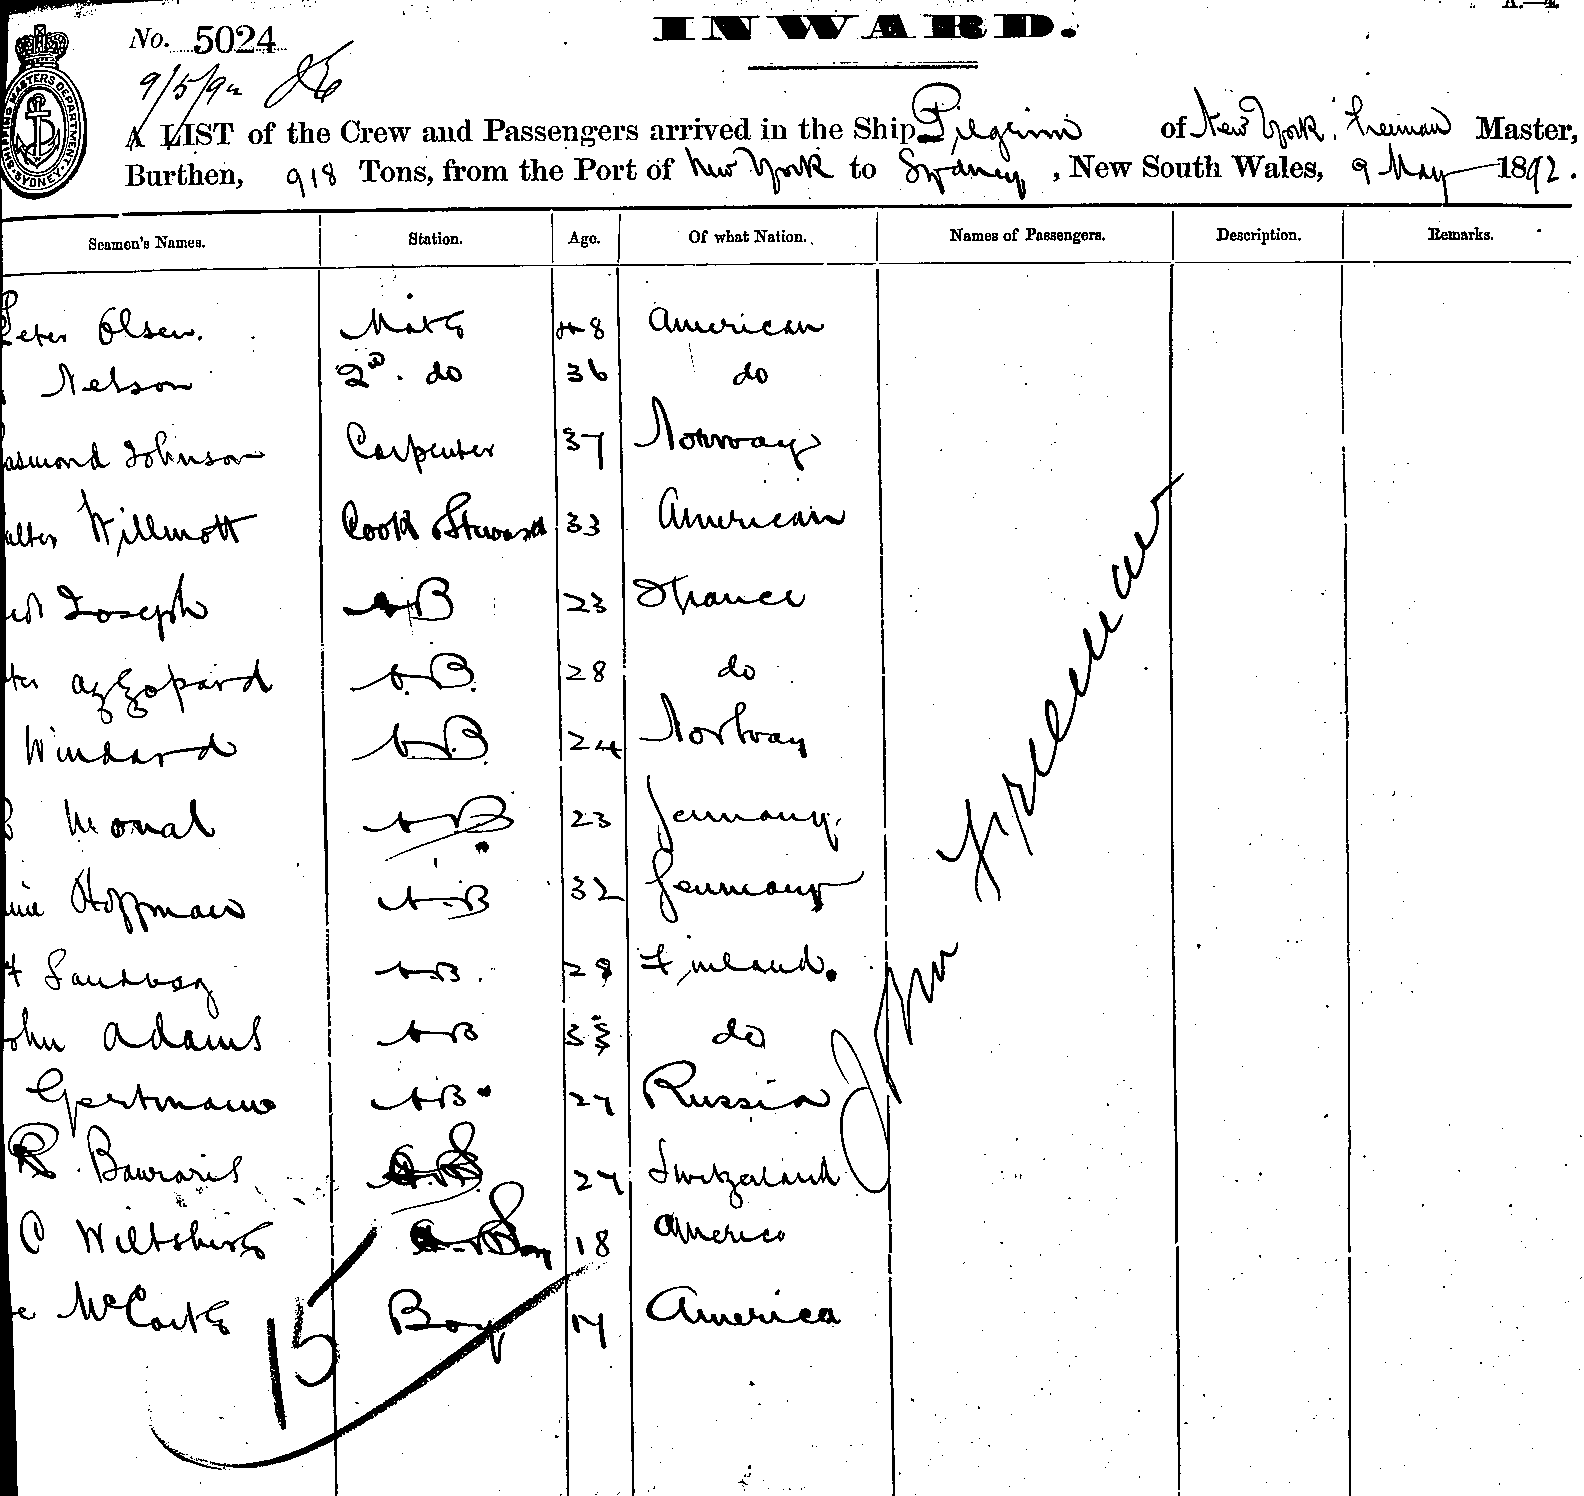 INWARD.
No. 5024
9/5/92
A LIST of the Crew and Passengers arrived in the Ship Pilgrim of New York, Freeman Master,
Burthen, 918 Tons, from the Port of New York to Sydney, New South Wales, 9 May 1892.
SHIPPING MASTERS DEPARTMENT SYDNEY
Seamen's Names. Station. Age. Of what Nation. Names of Passengers. Description. Remarks.
Peter Olsen. Mate 48 American
Nelson 2nd. do 36 do
asmond Johnson Carpenter 37 Norway
alter Willmott Cook & Steward 33 American
Joseph AB 23 France
ter Azzopard A.B. 28 do
Windard A.B. 24 Norway
Monal AB 23 Germany.
Hoffman A.B 32 Germany
Sandvag AB. 28 Finland.
John Adams AB 33 do
Gertmann AB. 27 Russia
R. 27 Switzerland
C Wiltshire Boy 18 America
McCarthy Boy 17 America
15
John Freeman